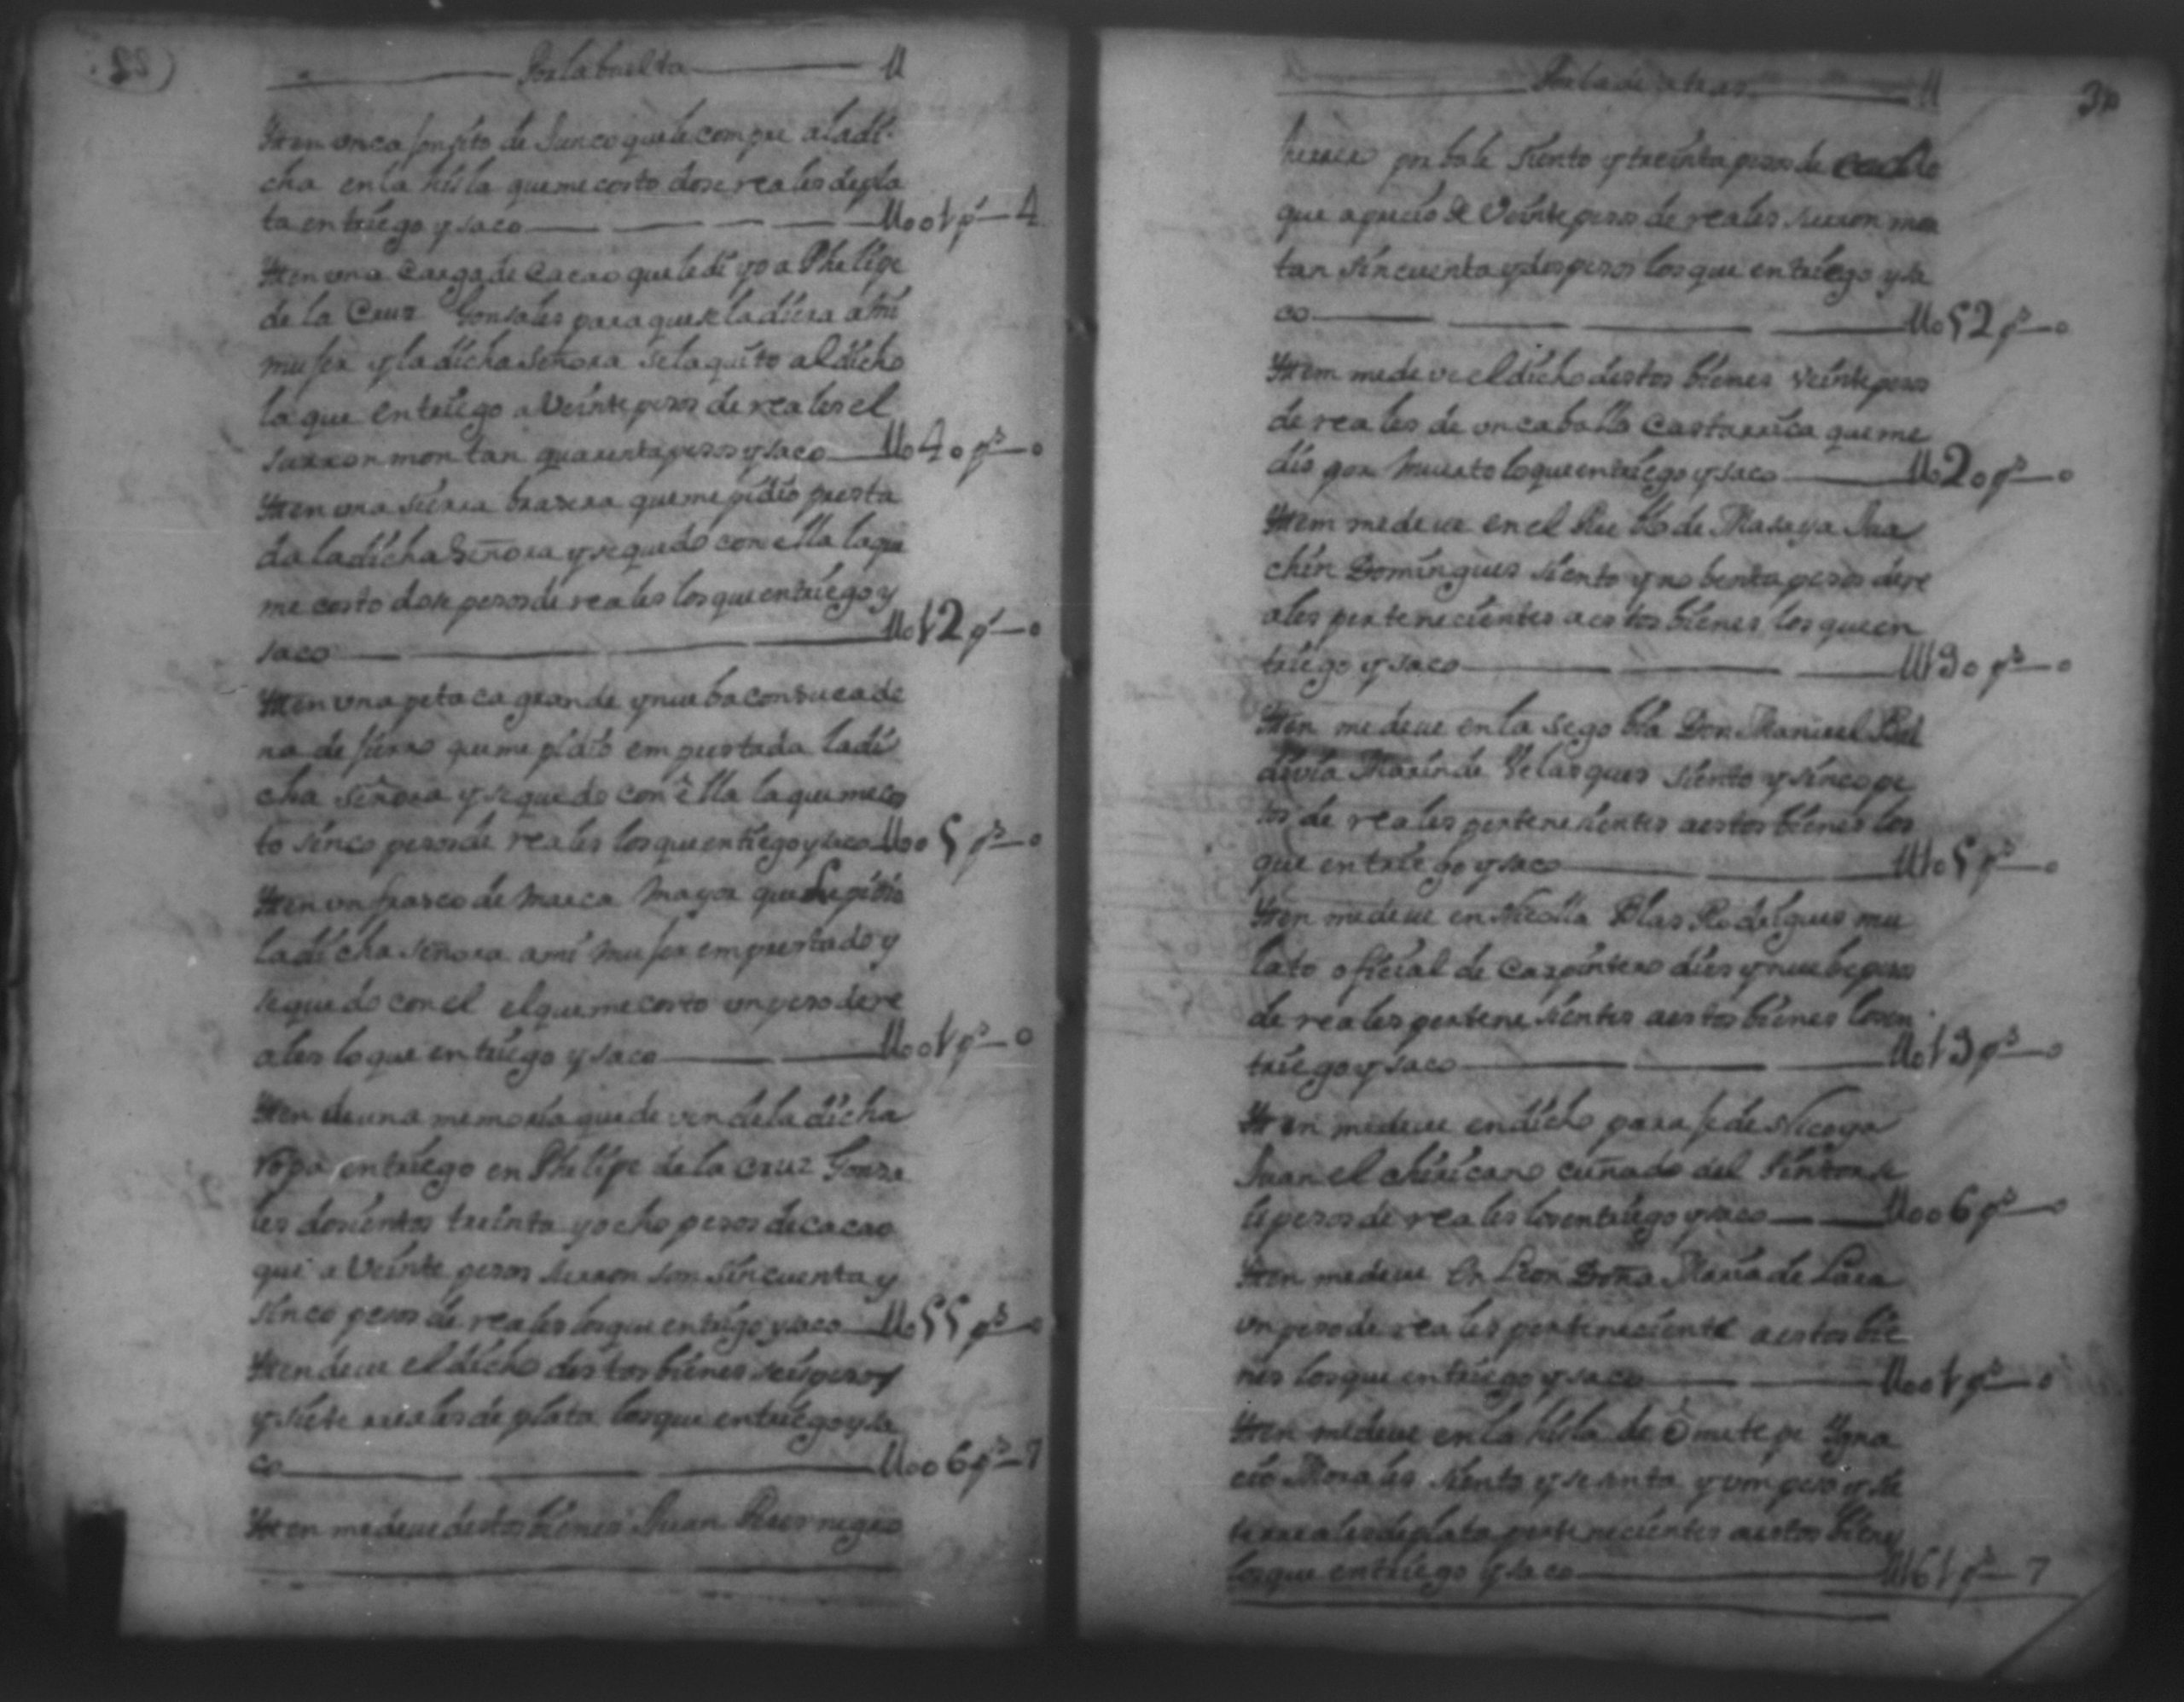 Por la buelta U
Yten un ca jonsito de Junco que le compre a la di
cha en la hisla que me costo dose reales de pla
ta entriego y saco U001 ps 4
Yten una Carga de Cacao que le di yo a Phelipe
de la Cruz Gonsales para que se la diera a mi
mujer y la dicha Señora se la quito al dicho
la que entriego a Veinte pesos de reales el
surron montan quarenta pesos y saco U040 ps 0
Yten una sierra brasera que me pidio presta
da la dicha Señora y se quedo con ella la que
me costo dose pesos de reales los que entriego y
saco U012 ps 0
Yten una petaca grande y nueba con su cade
na de fierro que me pidio em prestada la di
cha Señora y se quedo con ella la que me cos
to sinco pesos de reales los que entriego y saco U005 ps 0
Yten un frasco de marca mayor que le pidio
la dicha Señora a mi mujer em prestado y
se quedo con el el que me costo un peso de re
ales lo que entriego y saco U001 ps 0
Yten de una memoria que deven de la dicha
ropa entriego en Phelipe de la Cruz Gonza
les dosientos treinta y ocho pesos de cacao
que a Veinte pesos surron son sincuenta y
sinco pesos de reales los que entriego y saco U055 ps 0
Yten deue el dicho destos bienes seis pesos
y siete reales de plata los que entriego y sa
co U006 ps 7
Yten me deue destos bienes Juan Peres negro
Por la de atras U
30
por bale siento y treinta pesos de
que a precio de Veinte pesos de reales surron mon
tan sincuenta y dos pesos los que entriego y sa
co U052 ps 0
Ytem me deve el dicho destos bienes veinte pesos
de reales de un caballo que me
dio por muerto lo que entriego y saco U020 ps 0
Ytem me deue en el Pueblo de Masaya Jua
chin Domingues siento y nobenta pesos de re
ales pertenecientes a estos bienes los que en
triego y saco U190 ps 0
Yten me deue en la Segobia Don Manuel Bal
divia Marin de Velasques siento y sinco pe
sos de reales pertenesientes a estos bienes los
que entriego y saco U105 ps 0
Yten me deue en Nicolla Blas Rodrigues mu
lato oficial de Carpintero dies y nuebe pesos
de reales pertenesientes a estos bienes los en
triego y saco U019 ps 0
Yten me deue en dicho paraje de Nicoya
Juan el chiricano cuñado del
pesos de reales los entriego y saco U006 ps 0
Yten me deue en Leon Doña Maria de Lara
un peso de reales perteneciente a estos bie
nes los que entriego y saco U001 ps 0
Yten me deue en la hisla de Ometepe Ygna
cio Morales siento y sesenta y un pesos y sie
te reales de plata pertenecientes a estos bienes
los que entriego y saco U161 ps 7